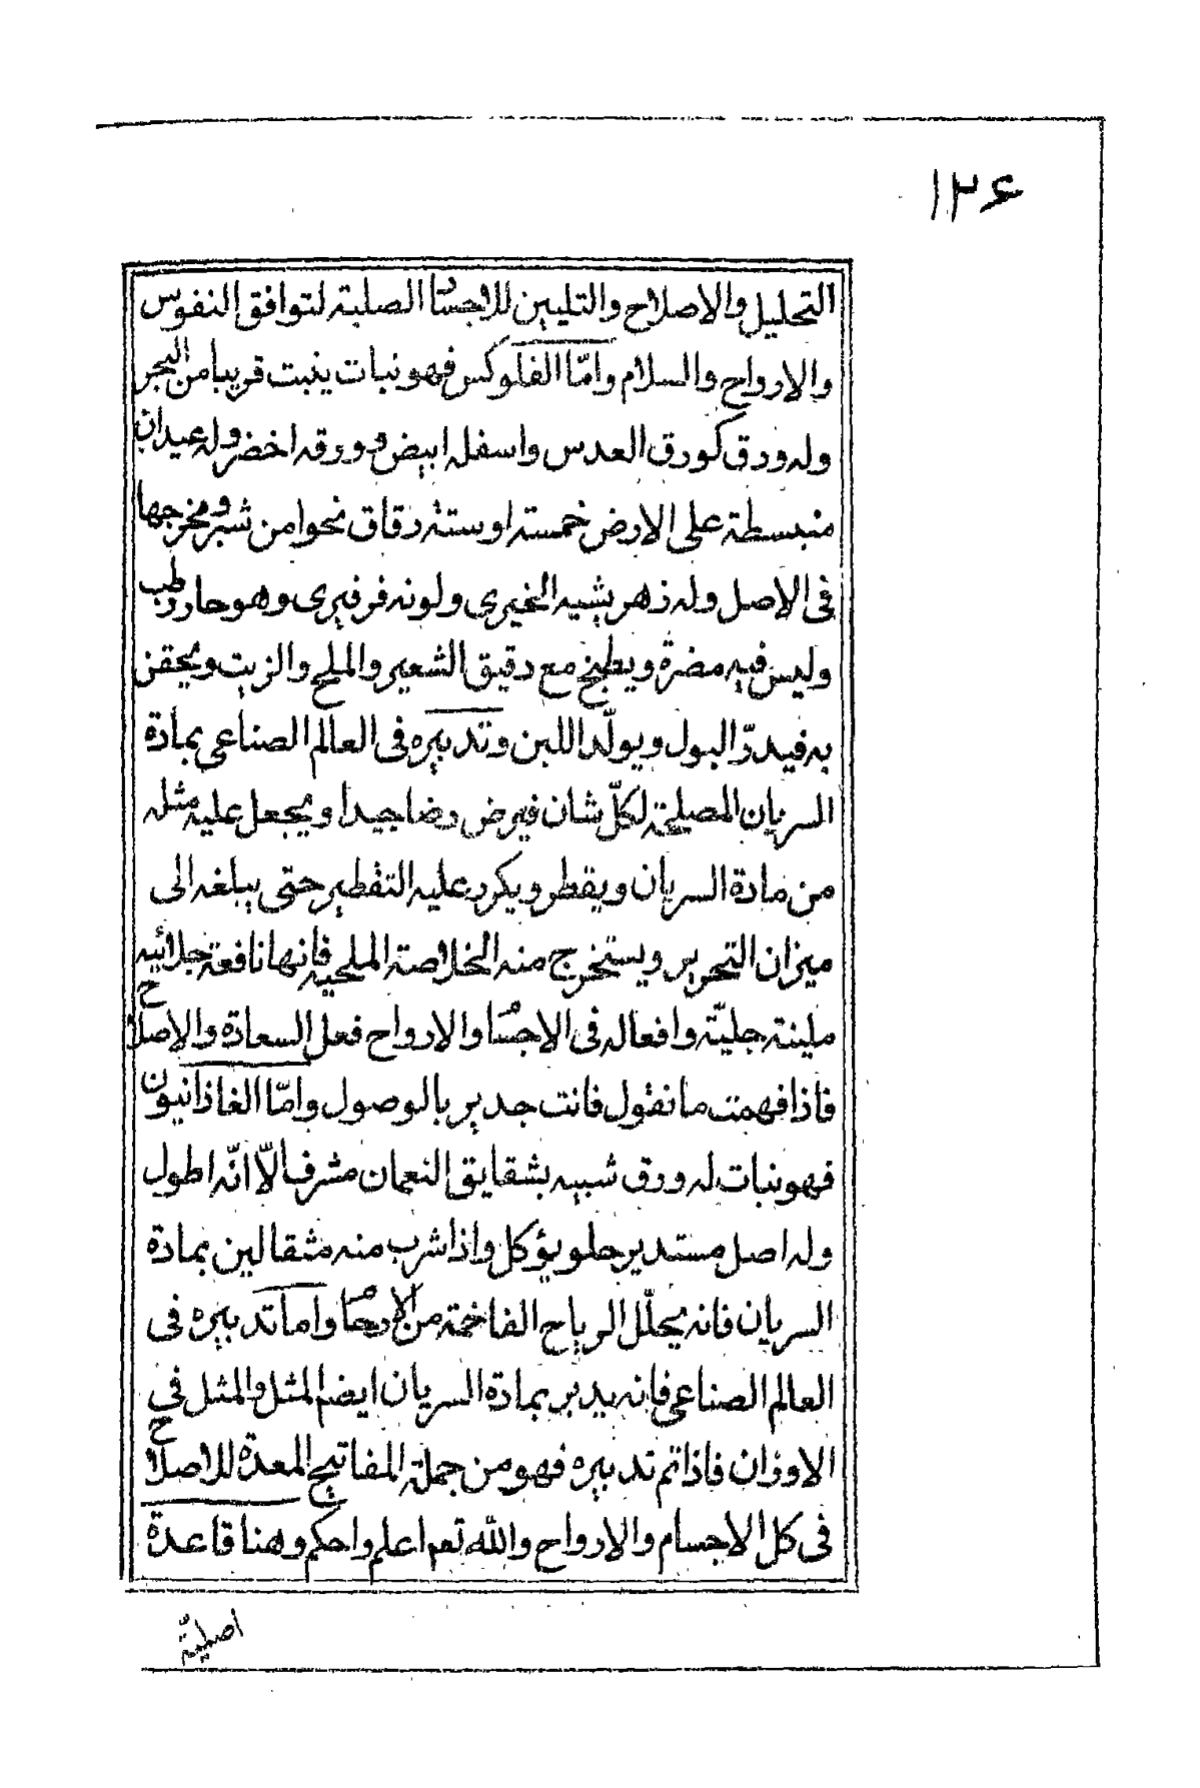 ۱۲۶
التحليل والاصلاح والتليين للاجساد الصلبة لتوافق النفوس
والارواح والسلام وامّا الفلوكس فهو نبات ينبت قريبا من البحر
وله ورق كورق العدس واسفله ابيض وورقه اخضر وله عيدان
منبسطة على الارض خمسة او ستة دقاق نحوا من شبر ومخرجها
فى الاصل وله زهر يشبه الخيرى ولونه فرفيرى وهو حار رطب
وليس فيه مضرة ويطبخ مع دقيق الشعير والملح والزيت ويحقن
به فيدرّ البول ويولّد اللبن وتدبيره فى العالم الصناعى بمادة
السريان المصلحة لكلّ شان فيرض رضا جيدا ويجعل عليه مثله
من مادة السريان ويقطر ويكرر عليه التقطير حتى يبلغه الى
ميزان التحرير ويستخرج منه الخلاصة الملحيه فانها نافعة جلائيه
ملينة جليّة وافعاله فى الاجسا والارواح فعل السعادة والاصلاح
فاذا فهمت ما نقول فانت جدير بالوصول وامّا الغاذانيون
فهو نبات له ورق شبيه بشقايق النعمان مشرف الّا انّه اطول
وله اصل مستدير حلو يؤكل واذا شرب منه مثقالين بمادة
السريان فانه يحلّل الرياح الفاخمة من الارحا واما تدبيره فى
العالم الصناعى فانه يدبر بمادة السريان ايضا المثل والمثل فى
الاوزان فاذا تم تدبيره فهو من جملة المفاتيح المعدة للاصلاح
فى كل الاجسام والارواح والله تعم اعلم واحكم وهنا قاعدة
اصليّة